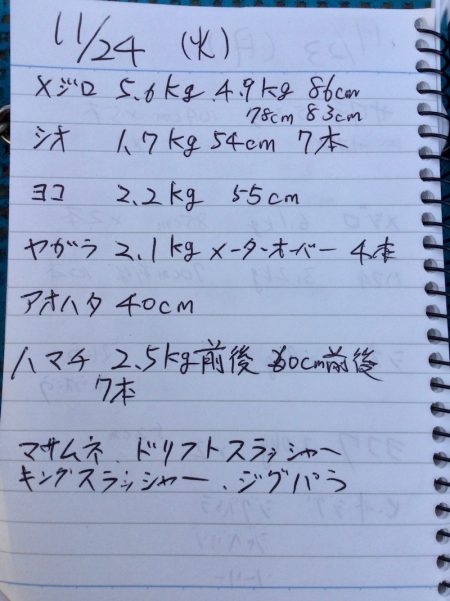 11/24 (火)
メジロ 5.6kg 4.9kg 86cm
78cm 83cm
シオ 1.7kg 54cm 7本
ヨコ 2.2kg 55cm
ヤガラ 2.1kg メーターオーバー 4本
アオハタ 40cm
ハマチ 2.5kg前後 60cm前後
7本
マサムネ、ドリフトスラッシャー
キングスラッシャー、ジグパラ